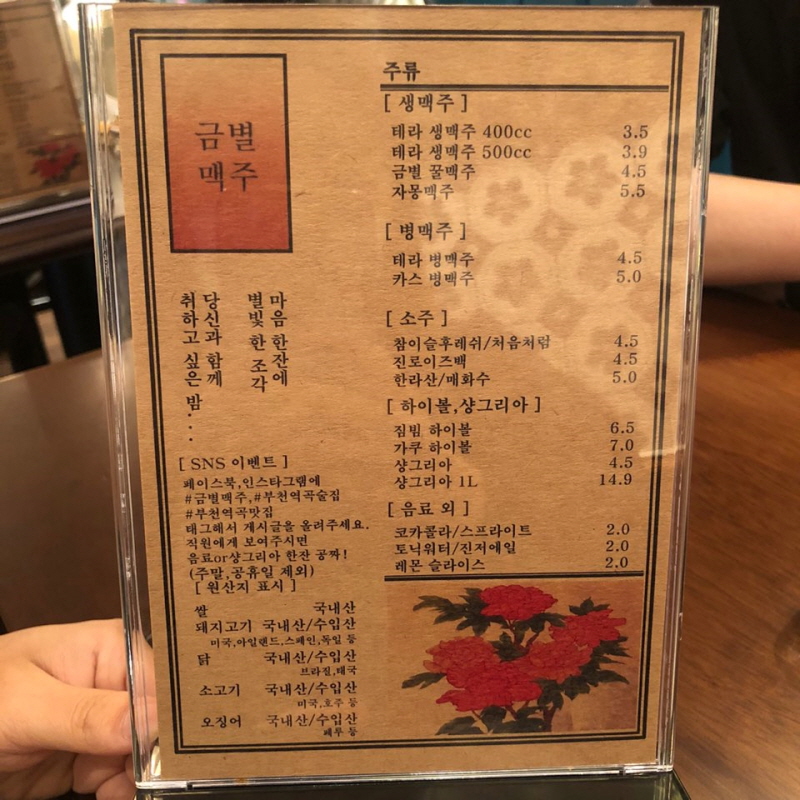 금별
맥주
마음 한 잔에
별빛 한 조각
당신과 함께
취하고 싶은 밤...
[ SNS 이벤트 ]
페이스북,인스타그램에
#금별맥주,#부천역곡술집
#부천역곡맛집
태그해서 게시글을 올려주세요.
직원에게 보여주시면
음료or샹그리아 한잔 공짜!
(주말,공휴일 제외)
[ 원산지 표시 ]
쌀 국내산
돼지고기 국내산/수입산
미국,아일랜드,스페인,독일 등
닭 국내산/수입산
브라질,태국
소고기 국내산/수입산
미국,호주 등
오징어 국내산/수입산
페루 등
주류
[ 생맥주 ]
테라 생맥주 400cc 3.5
테라 생맥주 500cc 3.9
금별 꿀맥주 4.5
자몽맥주 5.5
[ 병맥주 ]
테라 병맥주 4.5
카스 병맥주 5.0
[ 소주 ]
참이슬후레쉬/처음처럼 4.5
진로이즈백 4.5
한라산/매화수 5.0
[ 하이볼,샹그리아 ]
짐빔 하이볼 6.5
가쿠 하이볼 7.0
샹그리아 4.5
샹그리아 1L 14.9
[ 음료 외 ]
코카콜라/스프라이트 2.0
토닉워터/진저에일 2.0
레몬 슬라이스 2.0